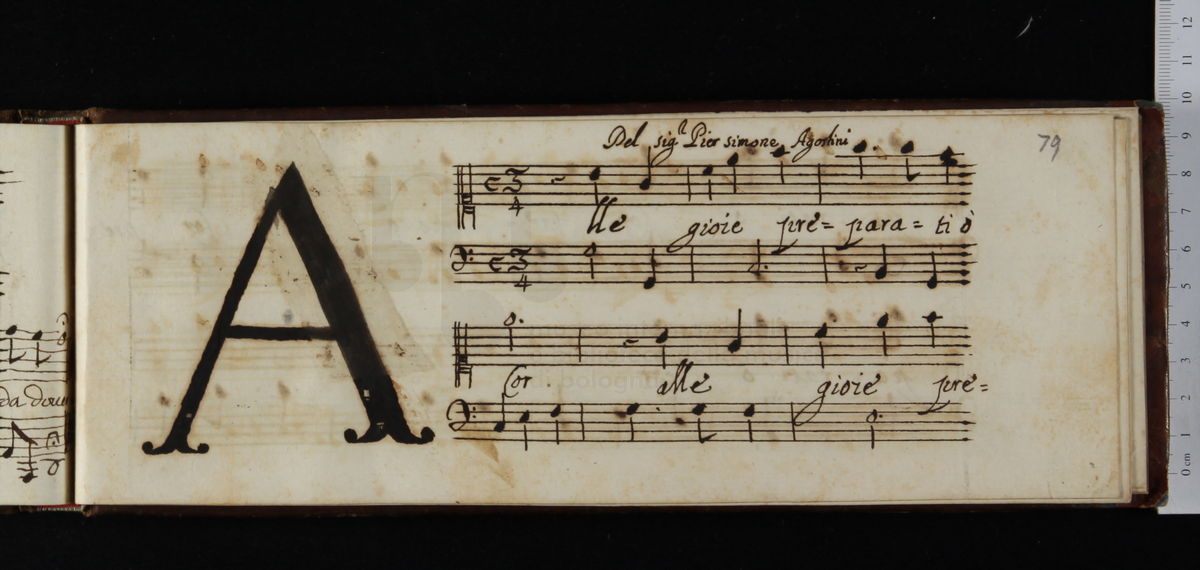 Del sig.r Pier simone Agostini
79
A
C 3/4
lle gioie pre= para= ti ò
C 3/4
Cor alle gioie pre=
da dou
0 cm 1 2 3 4 5 6 7 8 9 10 11 12